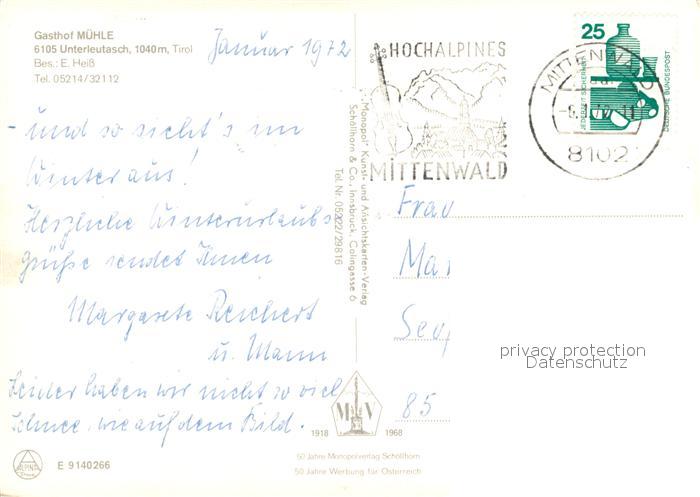 Gasthof MÜHLE
6105 Unterleutasch, 1040 m, Tirol
Bes.: E. Heiß
Tel. 05214/32112
Januar 1972
- und so sieht's im
Winter aus!
Herzliche Winterurlaubs
grüße sendet Ihnen
Margarete Reichert
u. Mann
Leider haben wir nicht so viel
Schnee, wie auf dem Bild.
ALPINA
E 9140266
"Monopol" Kunst- und Ansichtskarten-Verlag
Schöllhorn & Co., Innsbruck, Colingasse 6
Tel. Nr. 05222/29816
HOCHALPINES
MITTENWALD
25
JEDERZEIT SICHERHEIT
DEUTSCHE BUNDESPOST
MITTENWALD
8102
Frau
Mar
85
privacy protection
Datenschutz
M V
1918 1968
50 Jahre Monopolverlag Schöllhorn
50 Jahre Werbung für Österreich